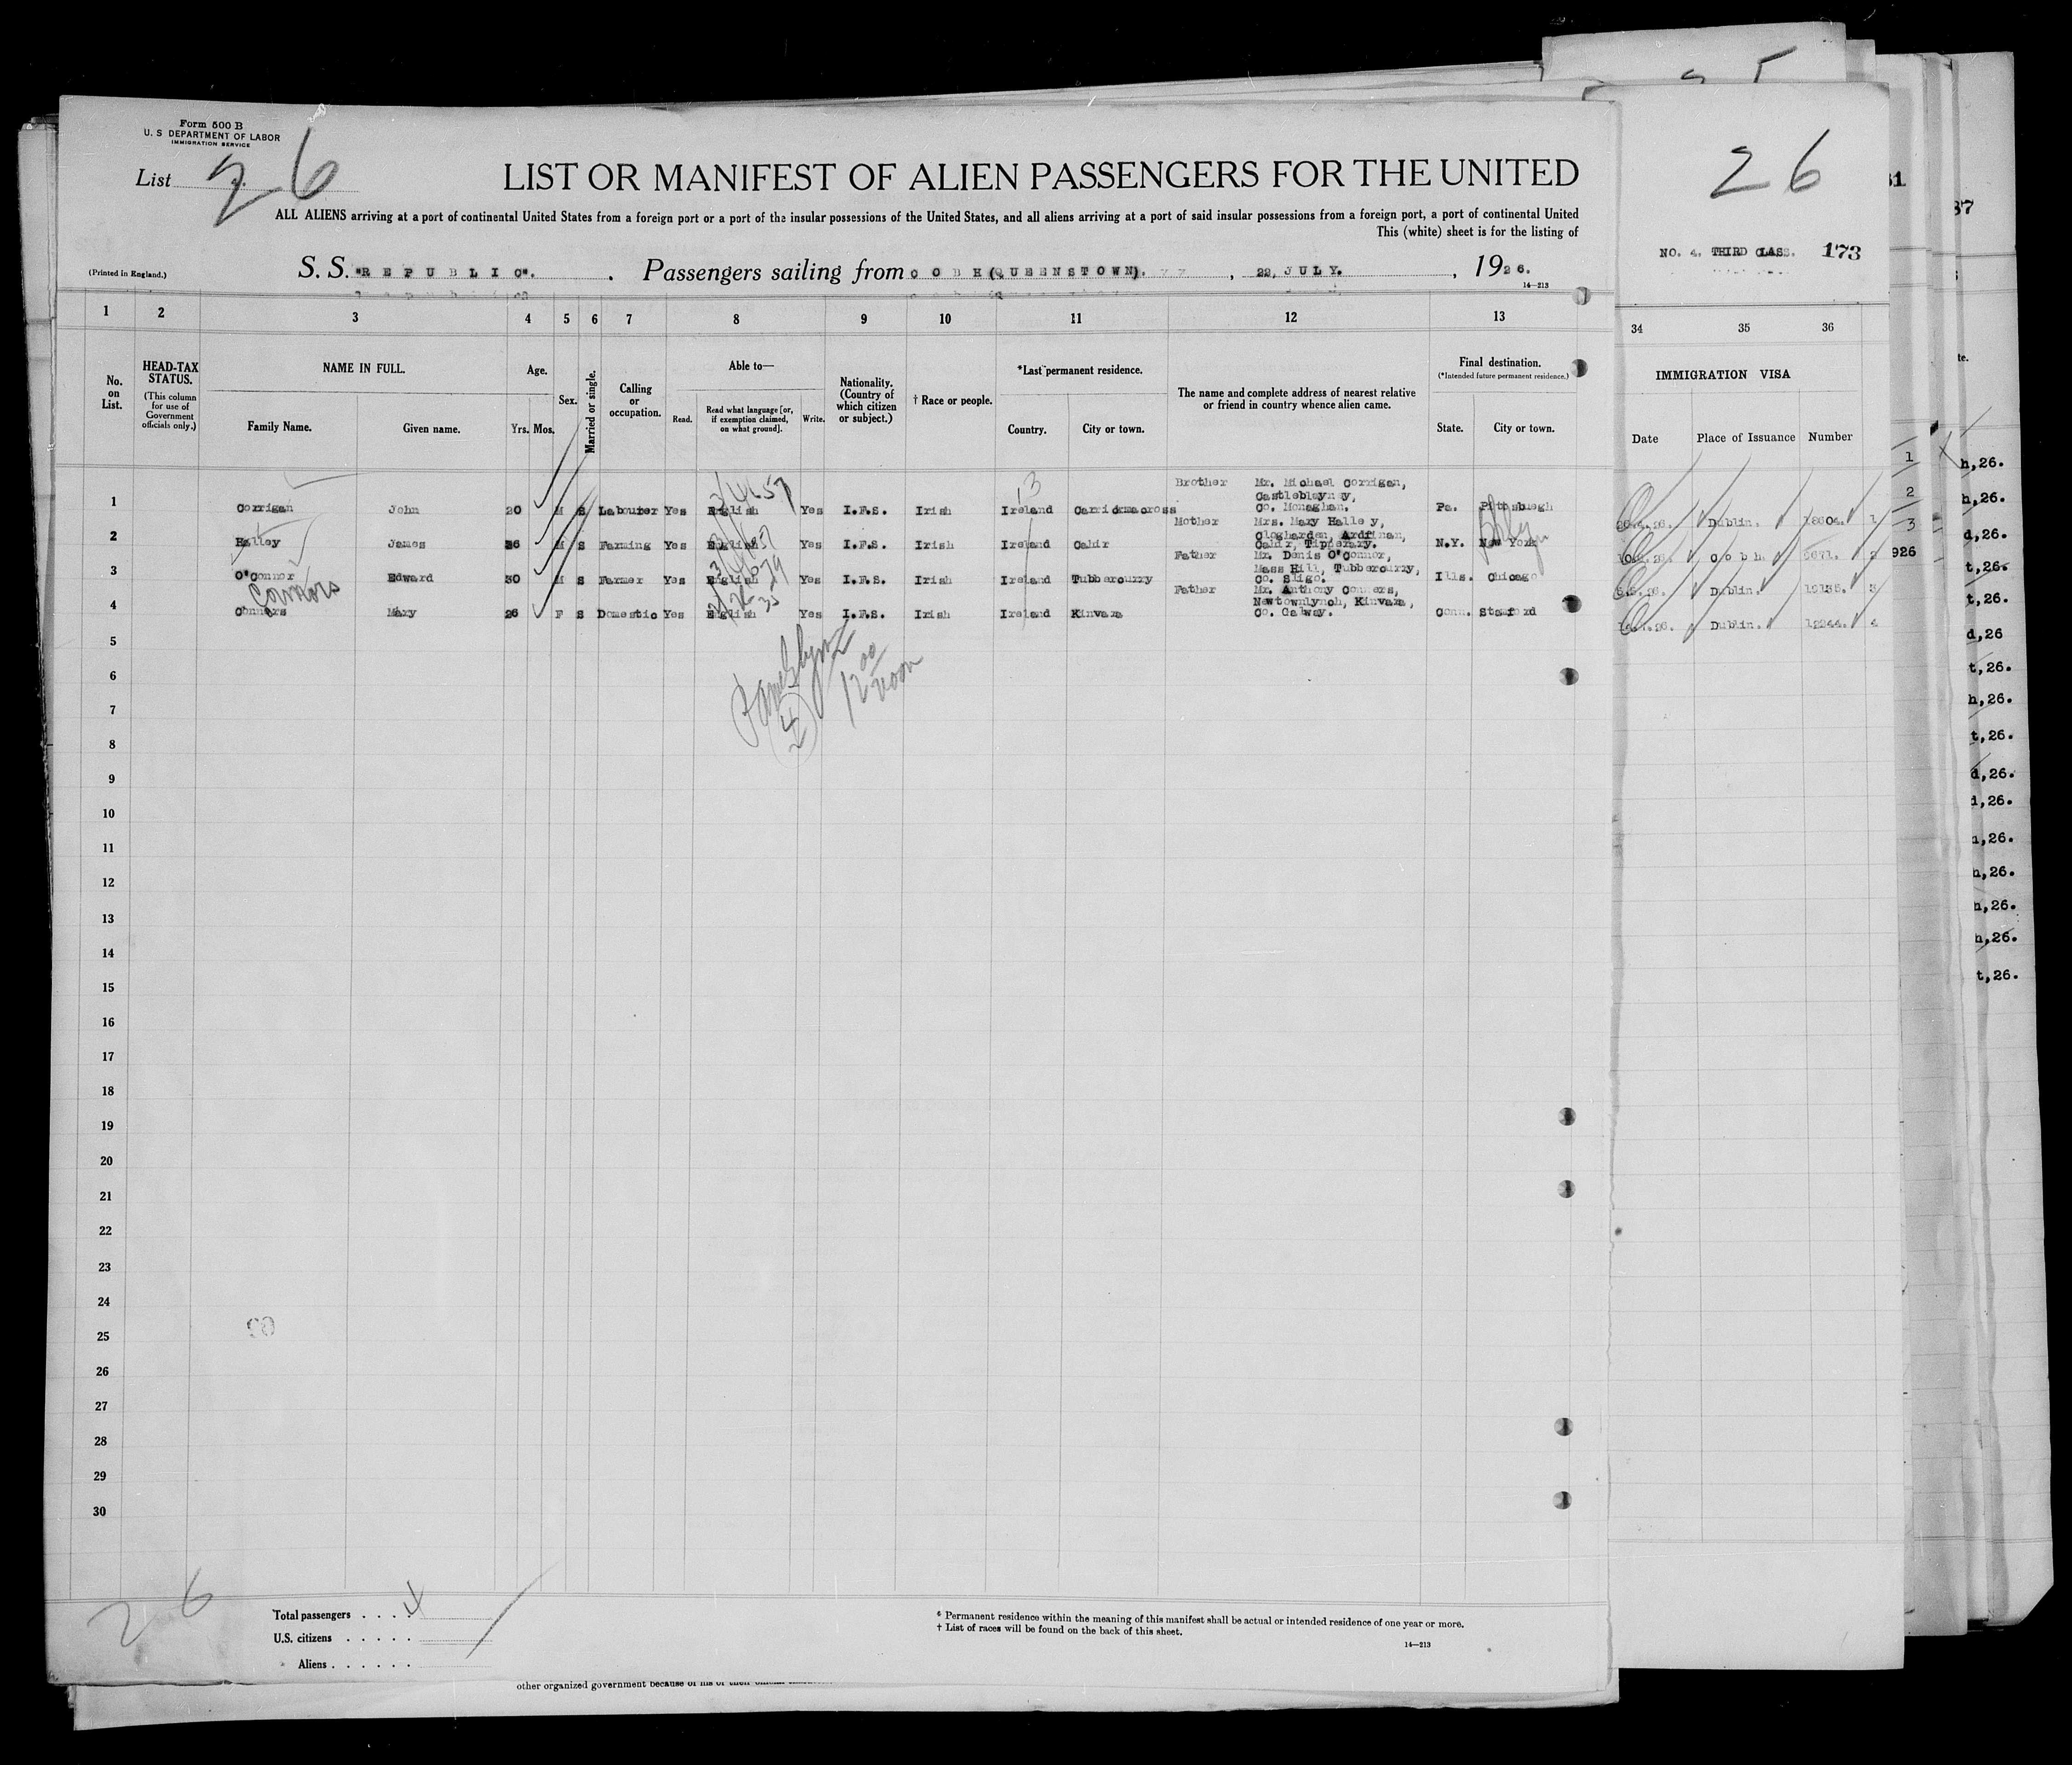 Form 500 B
U. S DEPARTMENT OF LABOR
IMMIGRATION SERVICE
List 26
LIST OR MANIFEST OF ALIEN PASSENGERS FOR THE UNITED
ALL ALIENS arriving at a port of continental United States from a foreign port or a port of the insular possessions of the United States, and all aliens arriving at a port of said insular possessions from a foreign port, a port of continental United
This (white) sheet is for the listing of
(Printed in England.)
S. S. "REPUBLIC". Passengers sailing from COBH (QUEENSTOWN). , 22, JULY. , 1926.
14—213
1 2 3 4 5 6 7 8 9 10 11 12 13
No. on List.
HEAD-TAX STATUS.
(This column for use of Government officials only.)
NAME IN FULL.
Family Name. Given name.
Age.
Yrs. Mos.
Sex.
Married or single.
Calling or occupation.
Able to—
Read. Read what language [or, if exemption claimed, on what ground]. Write.
Nationality. (Country of which citizen or subject.)
† Race or people.
*Last permanent residence.
Country. City or town.
The name and complete address of nearest relative or friend in country whence alien came.
Final destination.
(*Intended future permanent residence.)
State. City or town.
1 Corrigan John 20 M S Labourer Yes English Yes I.F.S. Irish Ireland Carrickmacross Brother Mr. Michael Corrigan, Castleblayney, Co. Monaghan. Pa. Pittsburgh
2 Halley James 36 M S Farming Yes English Yes I.F.S. Irish Ireland Cahir Mother Mrs. Mary Halley, Clogharden, Ardfinan, Cahir, Tipperary. N.Y. New York
3 O'Connor Edward 30 M S Farmer Yes English Yes I.F.S. Irish Ireland Tubbercurry Father Mr. Denis O'Connor, Mass Hill, Tubbercurry, Co. Sligo. Ills. Chicago
Connors
4 Conners Mary 26 F S Domestic Yes English Yes I.F.S. Irish Ireland Kinvara Father Mr. Anthony Conners, Newtownlynch, Kinvara, Co. Galway. Conn. Stamford
5
6
7
8
9
10
11
12
13
14
15
16
17
18
19
20
21
22
23
24
25
26
27
28
29
30
12 00 noon
26
Total passengers . . . . 4
U.S. citizens . . . . .
Aliens . . . . . .
* Permanent residence within the meaning of this manifest shall be actual or intended residence of one year or more.
† List of races will be found on the back of this sheet.
14—213
other organized government because of his or their official
26
NO. 4. THIRD CLASS. 173
34 35 36
IMMIGRATION VISA
Date Place of Issuance Number
Dublin. 18604. 1
Cobh. 2
Dublin. 3
Dublin. 12244. 4
1
2
3
926
h,26.
h,26.
d,26.
t,26.
t,26.
d,26
t,26.
h,26.
t,26.
d,26.
h,26.
h,26.
h,26.
t,26.